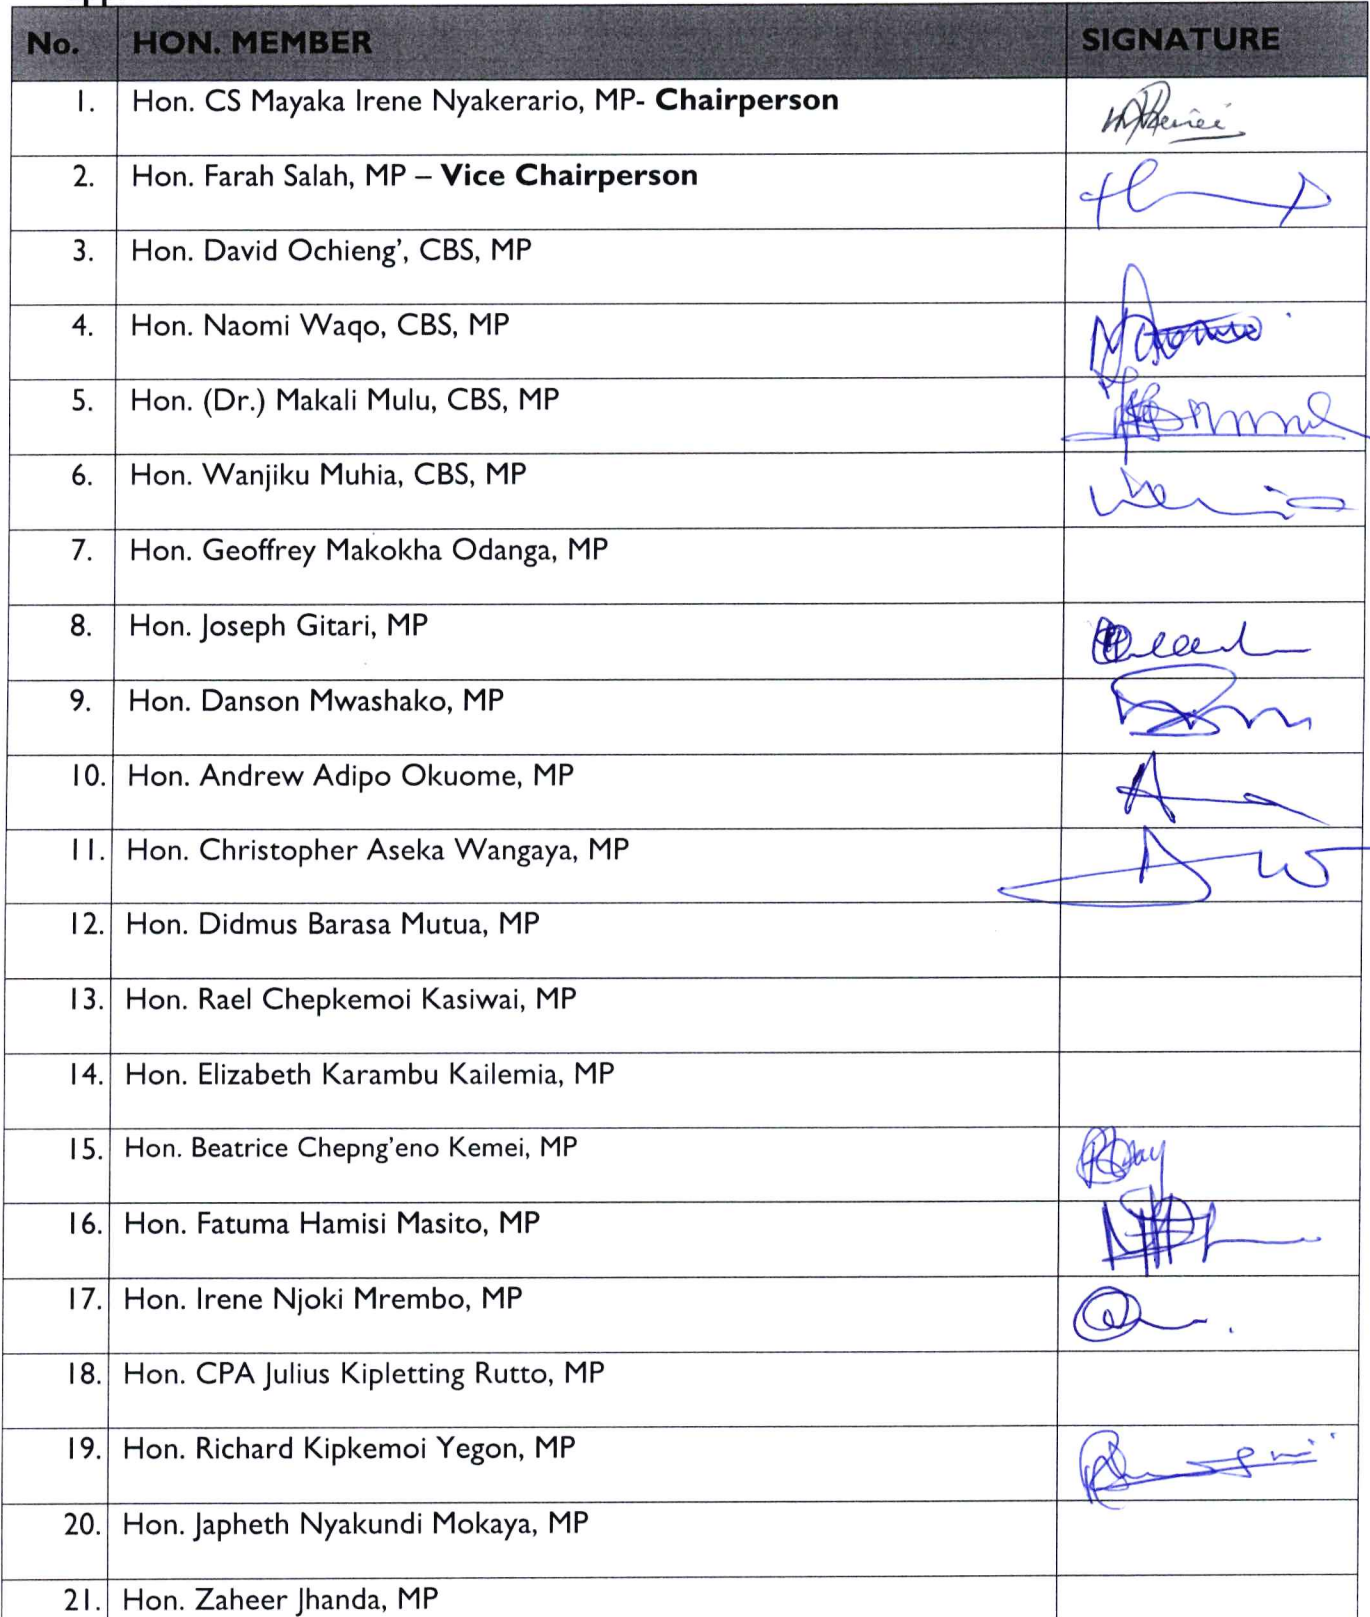 No. HON. MEMBER SIGNATURE
1. Hon. CS Mayaka Irene Nyakerario, MP- Chairperson
2. Hon. Farah Salah, MP – Vice Chairperson
3. Hon. David Ochieng’, CBS, MP
4. Hon. Naomi Waqo, CBS, MP
5. Hon. (Dr.) Makali Mulu, CBS, MP
6. Hon. Wanjiku Muhia, CBS, MP
7. Hon. Geoffrey Makokha Odanga, MP
8. Hon. Joseph Gitari, MP
9. Hon. Danson Mwashako, MP
10. Hon. Andrew Adipo Okuome, MP
11. Hon. Christopher Aseka Wangaya, MP
12. Hon. Didmus Barasa Mutua, MP
13. Hon. Rael Chepkemoi Kasiwai, MP
14. Hon. Elizabeth Karambu Kailemia, MP
15. Hon. Beatrice Chepng’eno Kemei, MP
16. Hon. Fatuma Hamisi Masito, MP
17. Hon. Irene Njoki Mrembo, MP
18. Hon. CPA Julius Kipletting Rutto, MP
19. Hon. Richard Kipkemoi Yegon, MP
20. Hon. Japheth Nyakundi Mokaya, MP
21. Hon. Zaheer Jhanda, MP